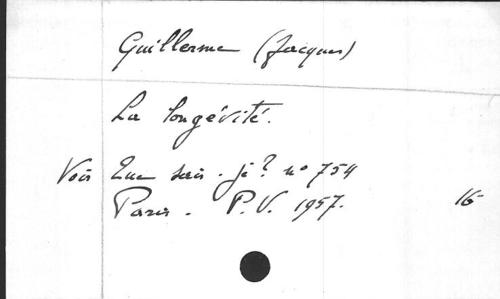 Guillerme (Jacques)
La longévité.
Voir Que sais-je? n° 754
Paris. P.V. 1957. 16